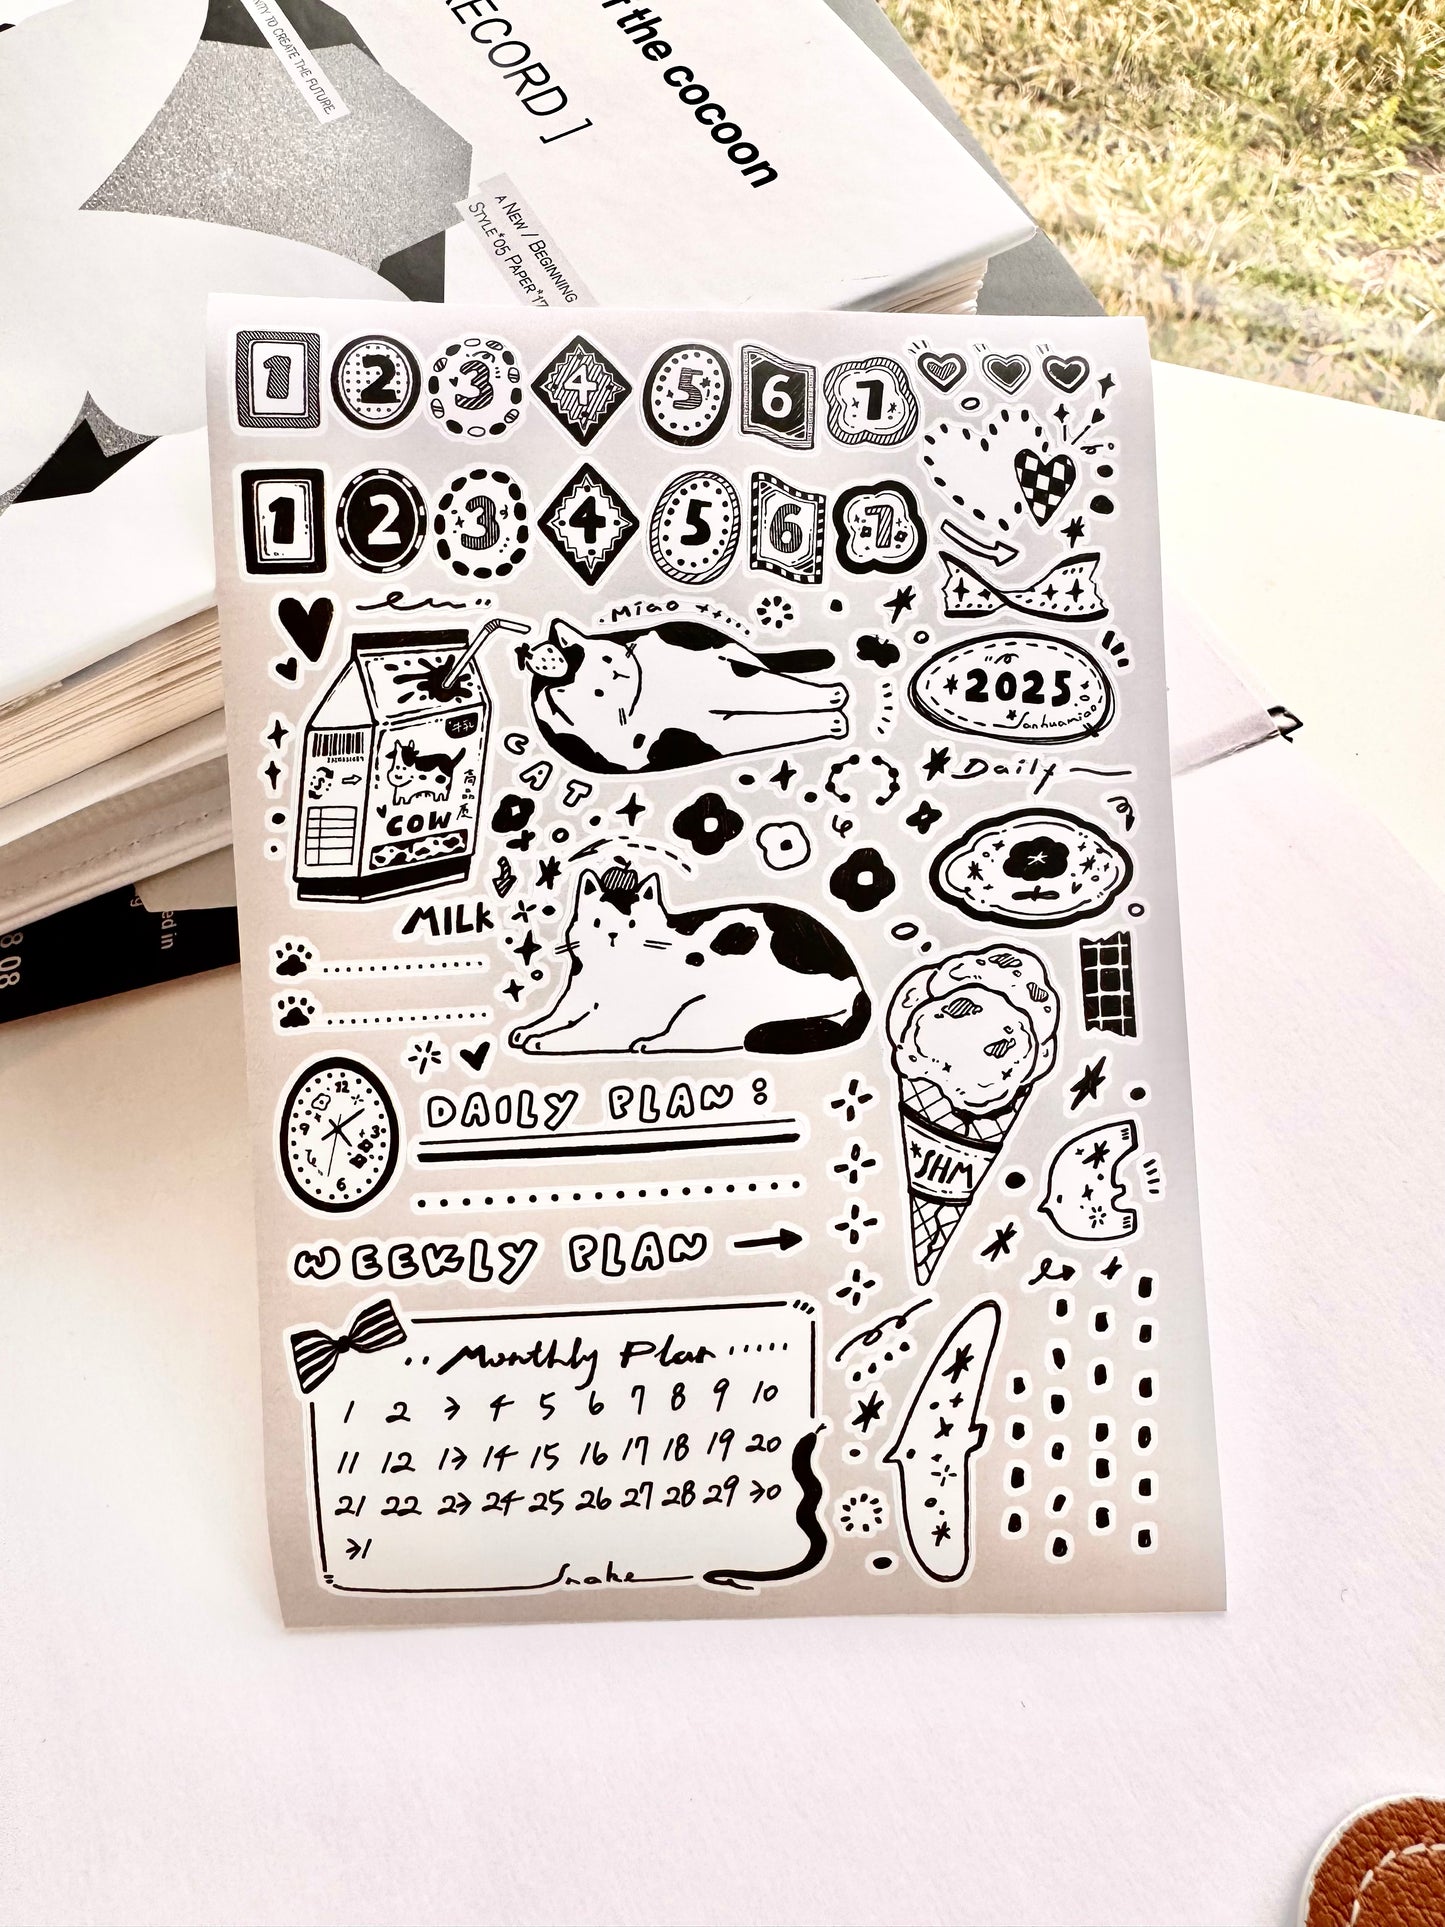 NITY TO CREATE THE FUTURE
RECORD ]
r the cocoon
A NEW / BEGINNING
STYLE*05 PAPER*17
1 2 3 4 5 6 7
1 2 3 4 5 6 7
Miao
2025
Sanhuamiao
Daily
CAT
牛乳
高品质
COW
MILK
12
9 3
6
DAILY PLAN:
SHM
WEEKLY PLAN
Monthly Plan
1 2 3 4 5 6 7 8 9 10
11 12 13 14 15 16 17 18 19 20
21 22 23 24 25 26 27 28 29 30
31
Snake
8 08